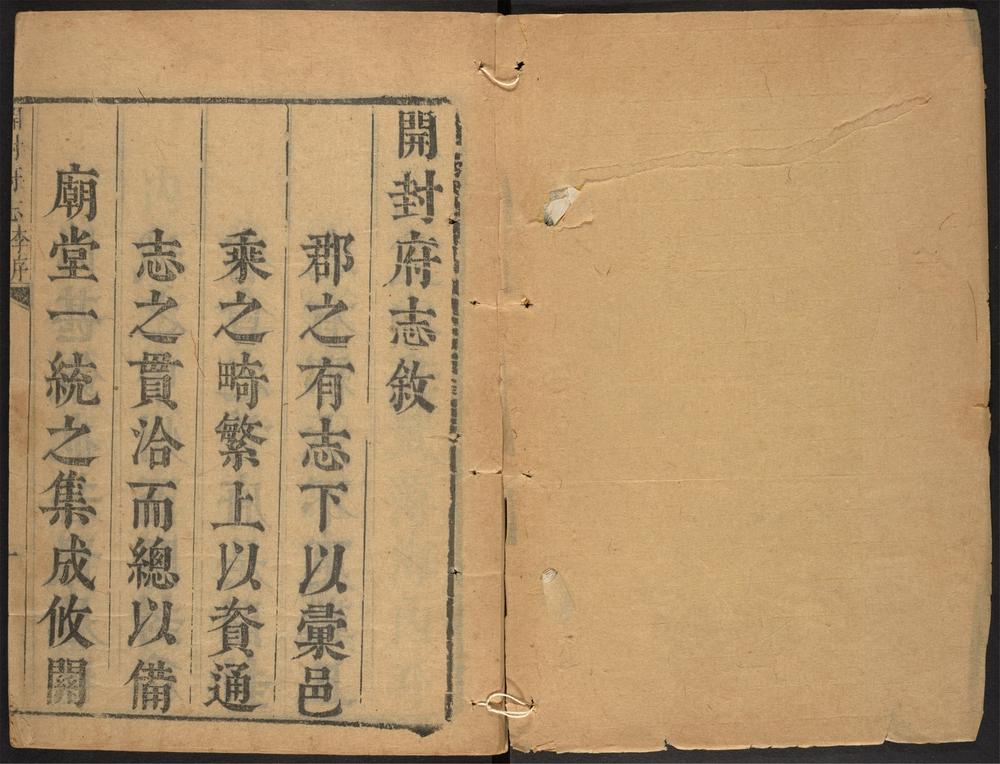 開封府志敘
郡之有志下以彙邑
乘之畸繁上以資通
志之貫洽而總以備
廟堂一統之集成攸關
開封府志李序
一